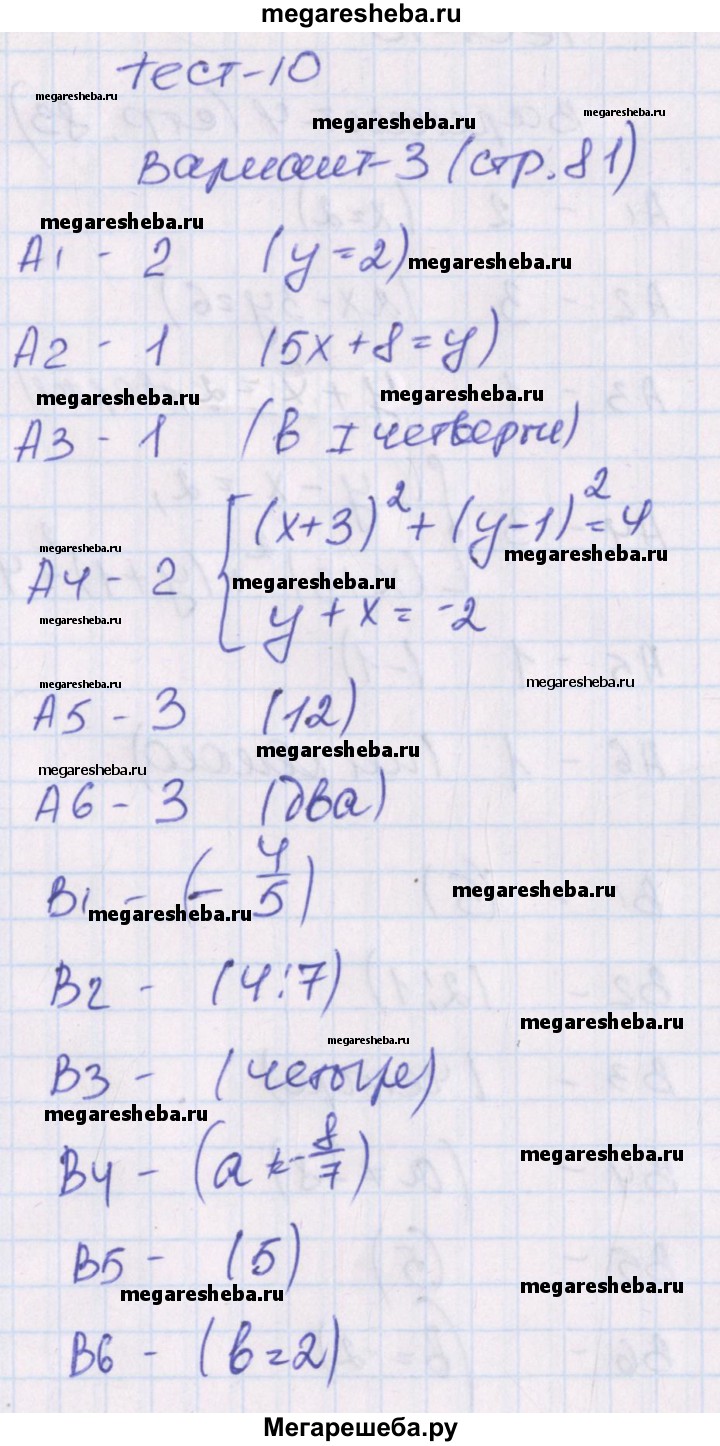 megaresheba.ru
тест-10
megaresheba.ru
megaresheba.ru
megaresheba.ru
вариант-3 (стр. 81)
megaresheba.ru
A1 - 2 (y = 2)
megaresheba.ru
A2 - 1 (5x + 8 = y)
megaresheba.ru
megaresheba.ru
A3 - 1 (в I четверти)
(x+3)² + (y-1)² = 4
megaresheba.ru
megaresheba.ru
A4 - 2
megaresheba.ru
y + x = -2
megaresheba.ru
megaresheba.ru
megaresheba.ru
A5 - 3 (12)
megaresheba.ru
megaresheba.ru
A6 - 3 (два)
B1 - (- 4/5)
megaresheba.ru
megaresheba.ru
B2 - (4;7)
megaresheba.ru
megaresheba.ru
B3 - (четыре)
megaresheba.ru
megaresheba.ru
B4 - (a = - 8/7)
B5 - (5)
megaresheba.ru
megaresheba.ru
B6 - (b = 2)
Мегарешеба.ру